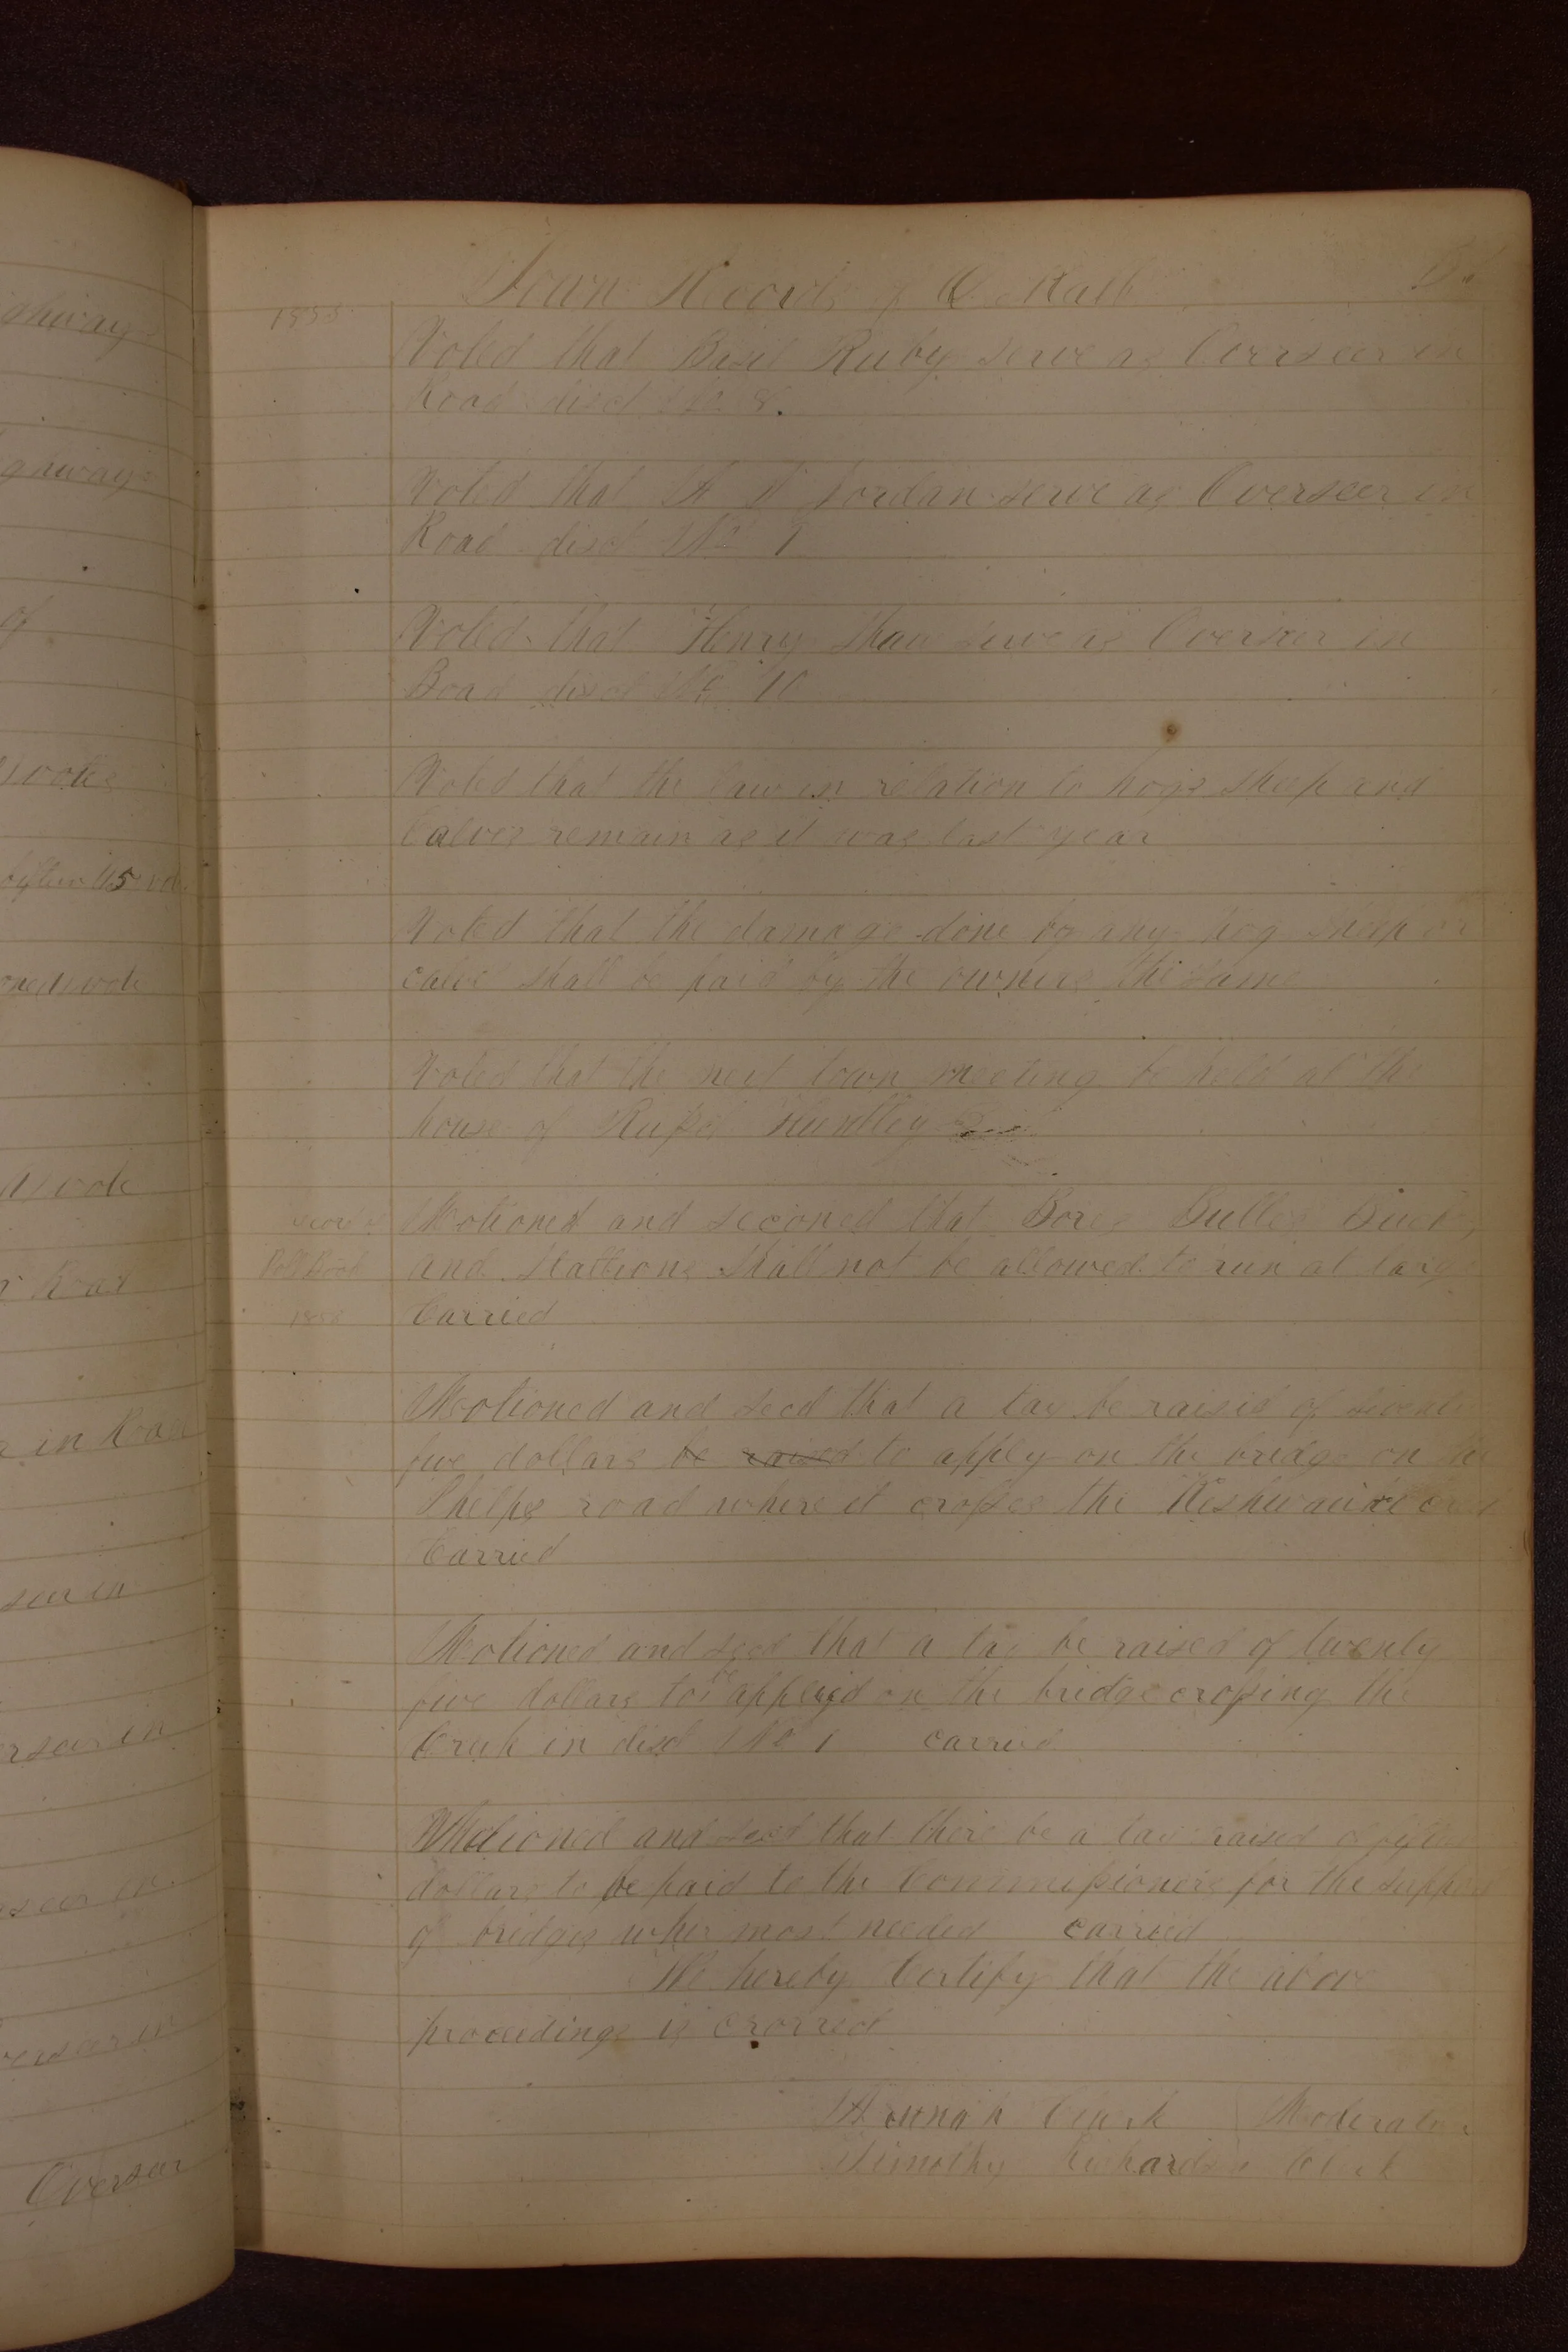 Town Records of De Kalb
Voted that Basil Ruby serve as Overseer in
Road disct No 8.
Voted that Jordan serve as Overseer in
Road disct No
Voted that Henry Shaw serve as Overseer in
Road disct No 10
Voted that the law in relation to hogs sheep and
Calves remain as it was last year
Voted that the damage done by any hog sheep or
calve shall be paid by the owners the same
Voted that the next town meeting be held at the
house of Russel Huntley
Motioned and seconed that Bores Bulls Bucks
and Stallions Shall not be allowed to run at large
Poll Book
1858
Carried
Motioned and secd that a tax be raised of
five dollars be raised to apply on the bridge on the
Phelps road where it crosses the Kishwaukee creek
Carried
Motioned and secd that a tax be raised of twenty
five dollars to be applied on the bridge crossing the
Creek in disct No 1 carried
Motioned and secd that there be a tax raised of
dollars to be paid to the Commissioners for the support
of bridges wher most needed carried
We hereby Certify that the above
proceedings is
Clark Moderator
Timothy Richardson Clerk
ghway
of
votes
vote
vote
in Road
seer in
erseer in
seer in
verseer in
Overseer